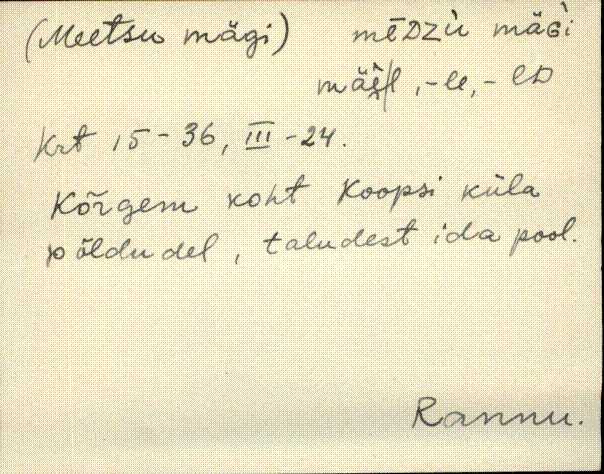 (Meetsu mägi) mēᴅzù mäɢ̀i
mäel, -le, -lᴅ
Krt 15-36, III-24.
Kõrgem koht Koopsi küla
põldudel, taludest ida pool.
Rannu.